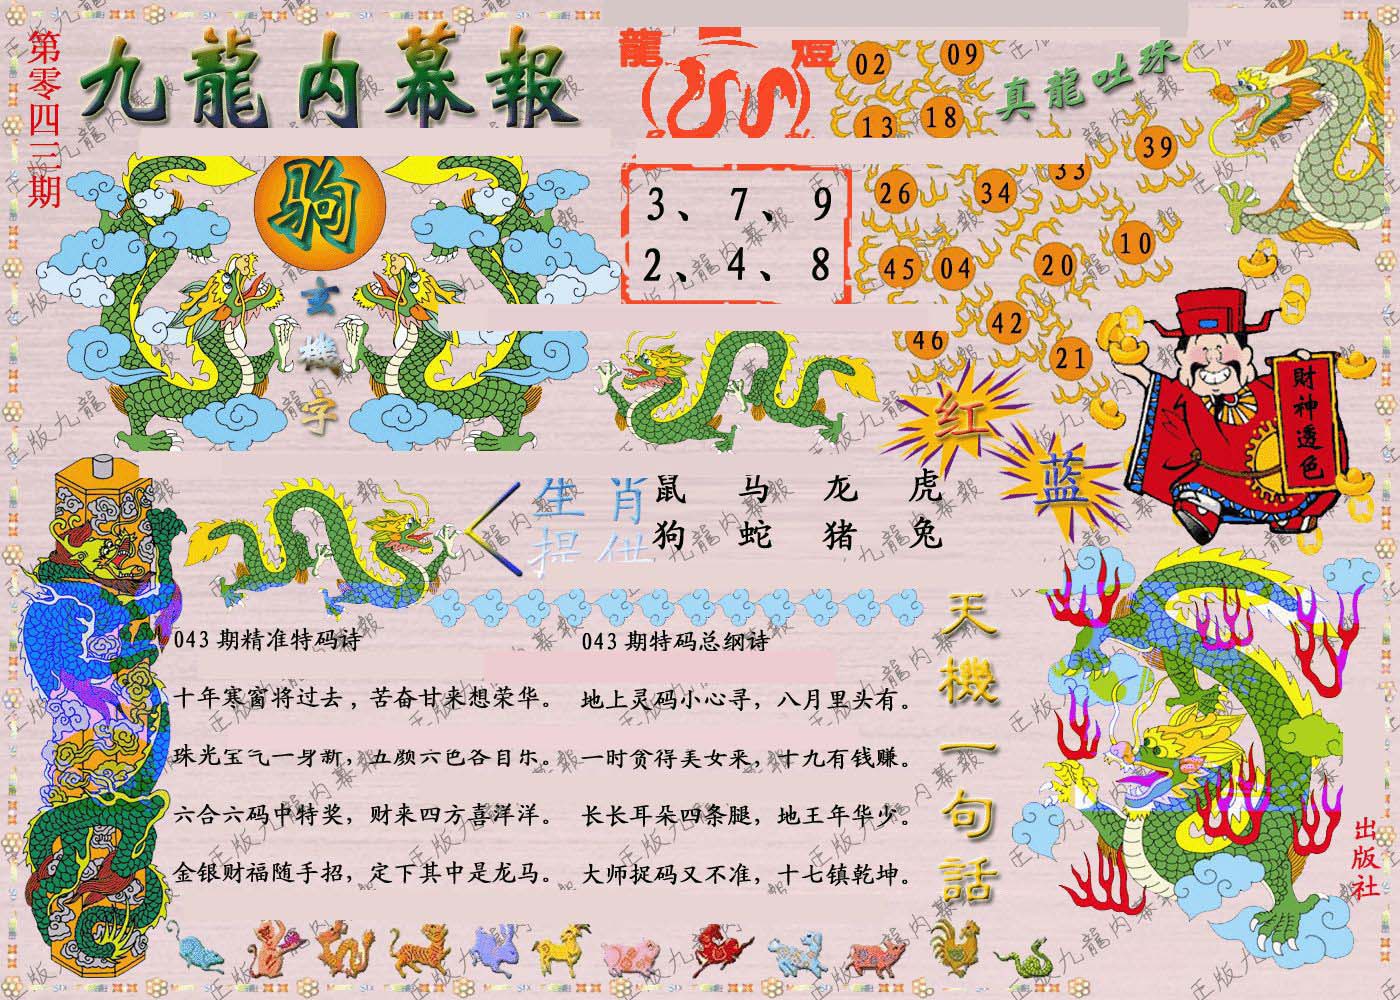 第零四三期
九龍内幕報
龍 燈
真龍吐珠
02 09
13 18
39
33
26 34
10
45 04 20
42
46 21
驹
玄機字
3、7、9
2、4、8
红
蓝
財神透色
生肖
提供
鼠 马 龙 虎
狗 蛇 猪 兔
043期精准特码诗
十年寒窗将过去，苦奋甘来想荣华。
珠光宝气一身新，五颜六色各自乐。
六合六码中特奖，财来四方喜洋洋。
金银财福随手招，定下其中是龙马。
043期特码总纲诗
地上灵码小心寻，八月里头有。
一时贪得美女来，十九有钱赚。
长长耳朵四条腿，地王年华少。
大师捉码又不准，十七镇乾坤。
天機一句話
出版社
正版九龍内幕報